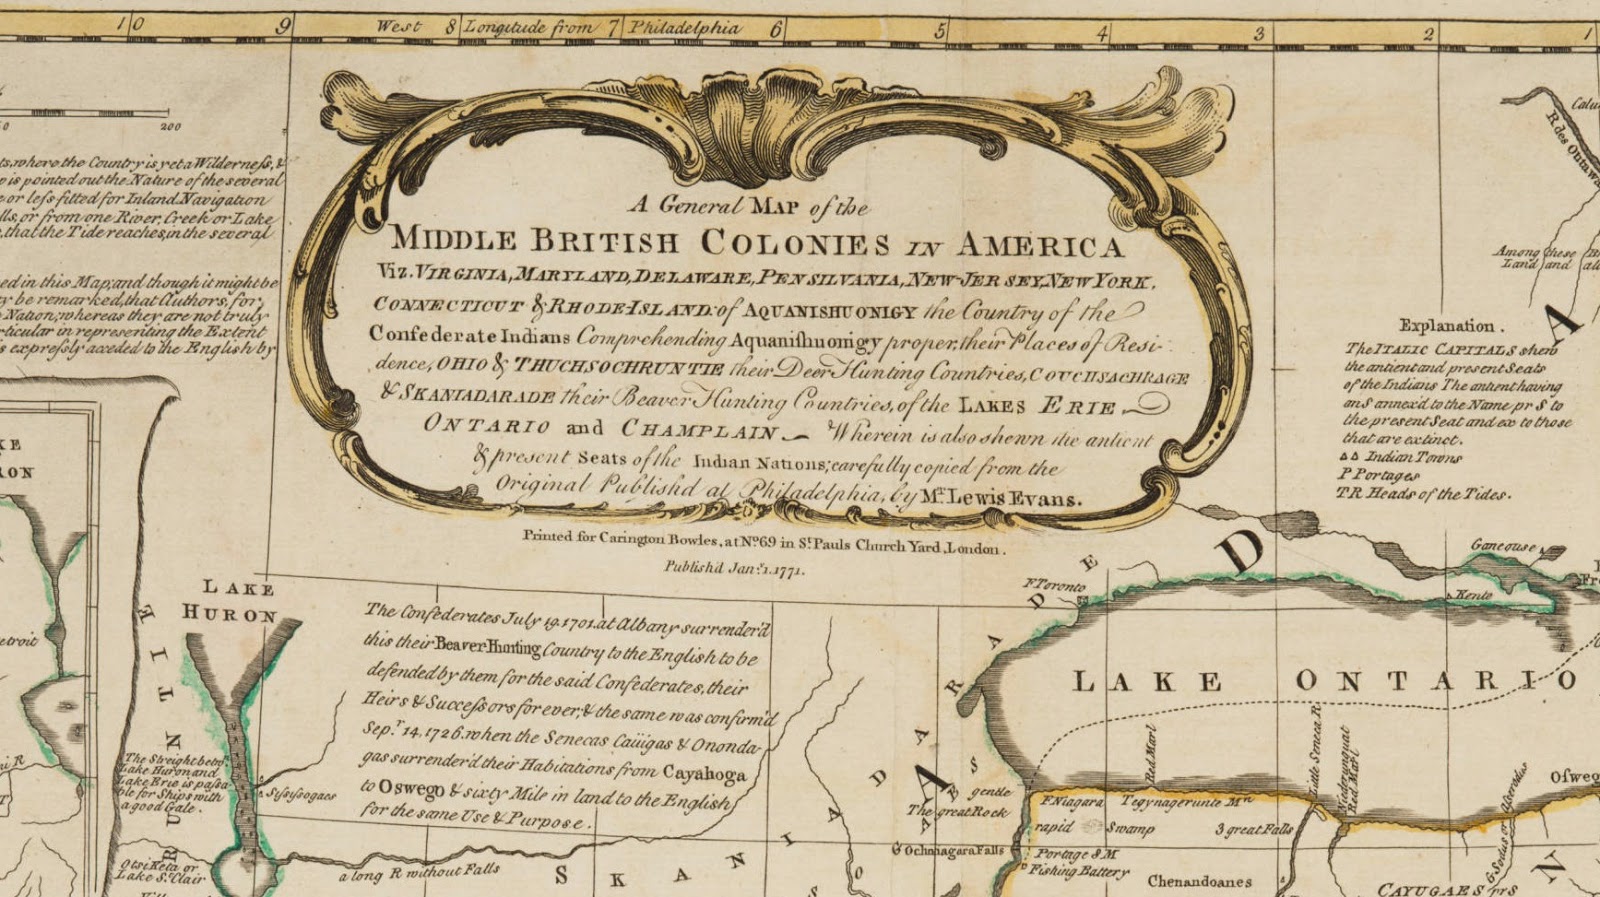 10 9 West 8 Longitude from 7 Philadelphia 6 5 4 3 2 1
200
where the Country is yet a Wilderness, &
is pointed out the Nature of the several
or less fitted for Inland Navigation
or from one River, Creek or Lake
that the Tide reaches, in the several
in this Map; and though it might be
be remarked, that Authors, for
Nation; whereas they are not truly
in representing the Extent
expressly acceded to the English by
A General MAP of the
MIDDLE BRITISH COLONIES IN AMERICA
Viz. VIRGINIA, MARYLAND, DELAWARE, PENSILVANIA, NEW-JERSEY, NEW YORK,
CONNECTICUT & RHODE-ISLAND: of AQUANISHUONIGY the Country of the
Confederate Indians Comprehending Aquanishuonigy proper, their Places of Resi-
dence, OHIO & THUCHSOCHRUNTIE their Deer Hunting Countries, COUCHSACHRAGE
& SKANIADARADE their Beaver Hunting Countries, of the LAKES ERIE
ONTARIO and CHAMPLAIN Wherein is also shewn the antient
& present Seats of the Indian Nations; carefully copied from the
Original Publish'd at Philadelphia, by Mr. Lewis Evans.
Printed for Carington Bowles, at No. 69 in St. Pauls Church Yard, London.
Publish'd Jany. 1. 1771.
R des Outawa
Among these
Land and
Explanation.
The ITALIC CAPITALS shew
the antient and present Seats
of the Indians The antient having
an S annex'd to the Name pr S to
the present Seat and ex to those
that are extinct.
△△ Indian Towns
P Portages
TR Heads of the Tides.
LAKE
HURON
The Confederates July 19. 1701. at Albany surrender'd
this their Beaver-Hunting Country to the English to be
defended by them for the said Confederates, their
Heirs & Successors for ever, & the same was confirm'd
Sepr. 14. 1726. when the Senecas Caiügas & Ononda-
gas surrender'd their Habitations from Cayahoga
to Oswego & sixty Mile in land to the English
for the same Use & Purpose.
The Streight betwn
Lake Huron and
Lake Erie is passa
ble for Ships with
a good Gale.
Otsi Keta or
Lake St. Clair
a long R without Falls
S K A N I A D A R A D E
F Toronto
Ganeouse
Kento
LAKE ONTARIO
Red Marl
Little Seneca R.
Red Marl
Oswego
gentle
The great Rock
F Niagara
Tegynagerunte Mn
rapid
Swamp
3 great Falls
Ochniagara Falls
Portage 8 M
Fishing Battery
Chenandoanes
CAYUGAES prs
A
D
A
N